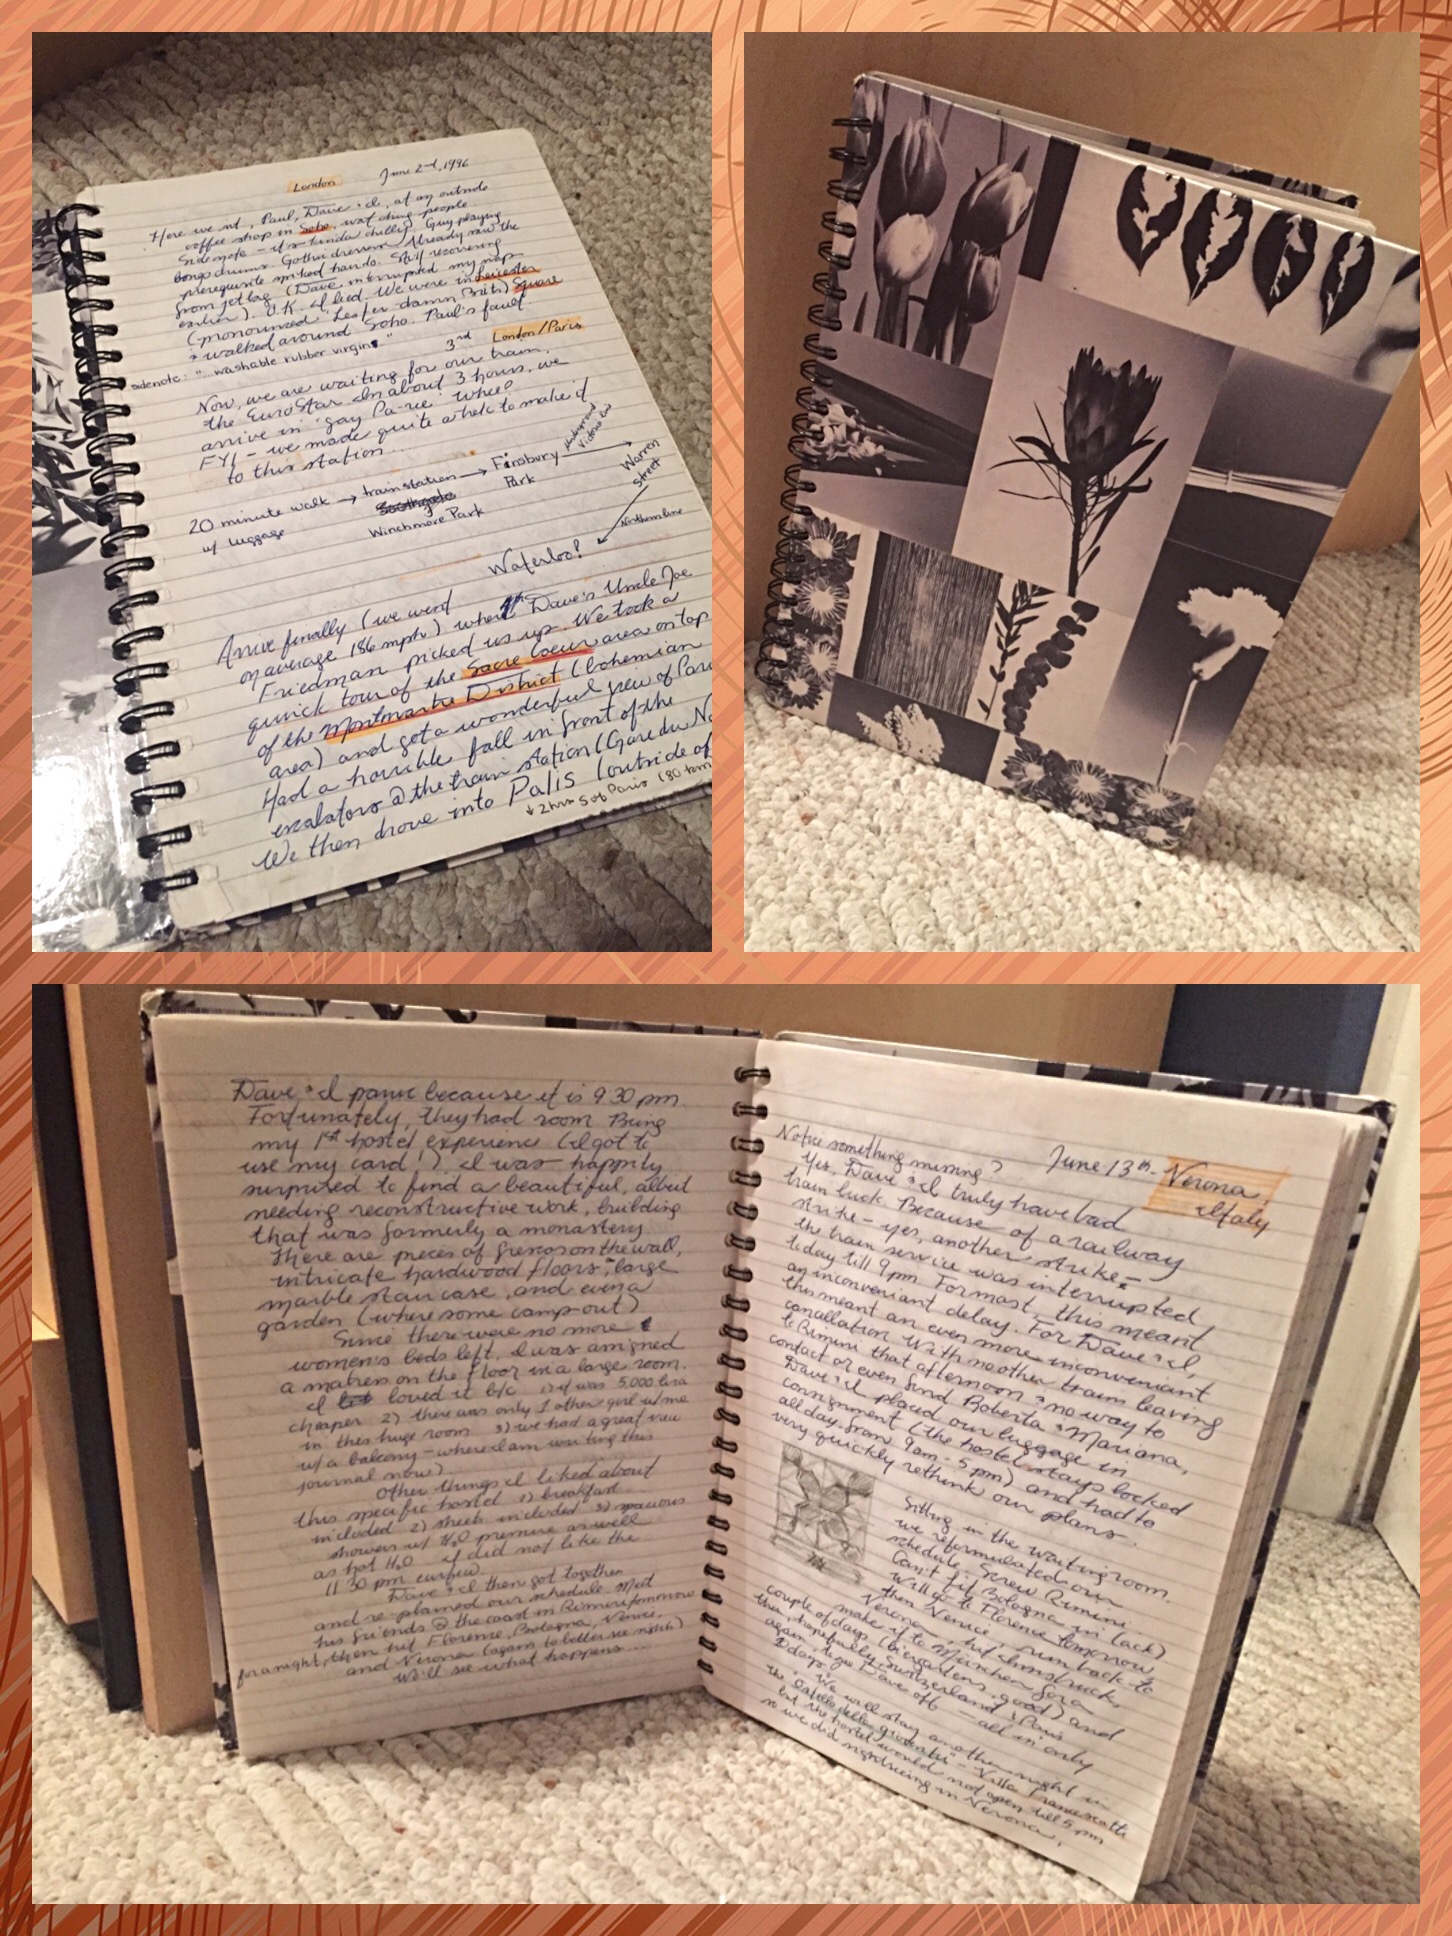 London June 2nd, 1996
Here we sit, Paul, Dave & I, at an outside
coffee shop in Soho, watching people.
Sidenote - it's kinda chilly. Guy playing
bongo drums. Gothic dressers. Already saw the
prerequisite miked hands. Still recovering
from jet lag (Dave interrupted my nap
earlier). O.K. I lied. We were in Leicester
(pronounced "Lester" damn Brits) Square
& walked around Soho. Paul's fault
sidenote: "washable rubber virgin"
3rd London/Paris
Now, we are waiting for our train,
the EuroStar. In about 3 hours, we
arrive in "gay Pa-ree" whee!
FYI - we made quite a trek to make it
to this station...
20 minute walk → train station → Finsbury → Warren
w/ luggage Southgate Park Street
Winchmore Park
underground
Victoria line
Northern line
Waterloo!
Arrive finally (we went
on average 186 mph) where Dave's Uncle Joe
Friedman picked us up. We took a
quick tour of the Sacre Coeur area on top
of the Montmartre District (bohemian
area) and got a wonderful view of Paris
Had a horrible fall in front of the
escalators @ the train station (Gare du No
We then drove into Palis (outside of
↓ 2 hrs S of Paris (80 tam
Dave & I panic because it is 9:30 pm.
Fortunately, they had room. Being
my 1st hostel experience (I got to
use my card!), I was happily
surprised to find a beautiful, albeit
needing reconstructive work, building
that was formerly a monastery.
There are pieces of frescos on the wall,
intricate hardwood floors, large
marble staircase, and even a
garden (where some camp-out)
Since there were no more
women's beds left, I was assigned
a matress on the floor in a large room.
I loved it b/c 1) it was 5,000 lira
cheaper 2) there was only 1 other girl w/me
in this huge room 3) we had a great view
w/a balcony - where I am writing this
journal now).
Other things I liked about
this specific hostel 1) breakfast
included 2) sheets included 3) spacious
showers w/ H2O pressure as well
as hot H2O. I did not like the
11:30 pm curfew.
Dave & I then got together
and re-planned our schedule. Meet
his friends @ the coast in Rimini tomorrow
for a night, then hit Florence, Bologna, Venice,
and Verona (again to better see sights)
We'll see what happens....
June 13th - Verona,
Italy
Notice something missing?
Yes, Dave & I truly have bad
train luck. Because of a railway
strike - yes, another strike -
the train service was interrupted
today till 9 pm. For most, this meant
an inconvenient delay. For Dave & I,
this meant an even more inconvenient
cancellation. With no other train leaving
to Rimini that afternoon & no way to
contact or even find Roberta & Mariana,
Dave & I placed our luggage in
consignment (the hostel stays locked
all day from 9am - 5pm) and had to
very quickly rethink our plans.
Sitting in the waiting room
we reformulated our
schedule. Screw Rimini.
Can't fit Bologna in (ack)
Will go to Florence tomorrow
then Venice, run back to
Verona, hit Innsbruck,
make it to München for a
couple of days (biergartens, good) and
then, hopefully, Switzerland & Paris
again, to see Dave off - all in only
days.
We will stay another night in
the "Ostello della gioventu" - Villa Francescatti
but the hostel would not open till 5 pm
so we did sightseeing in Verona,